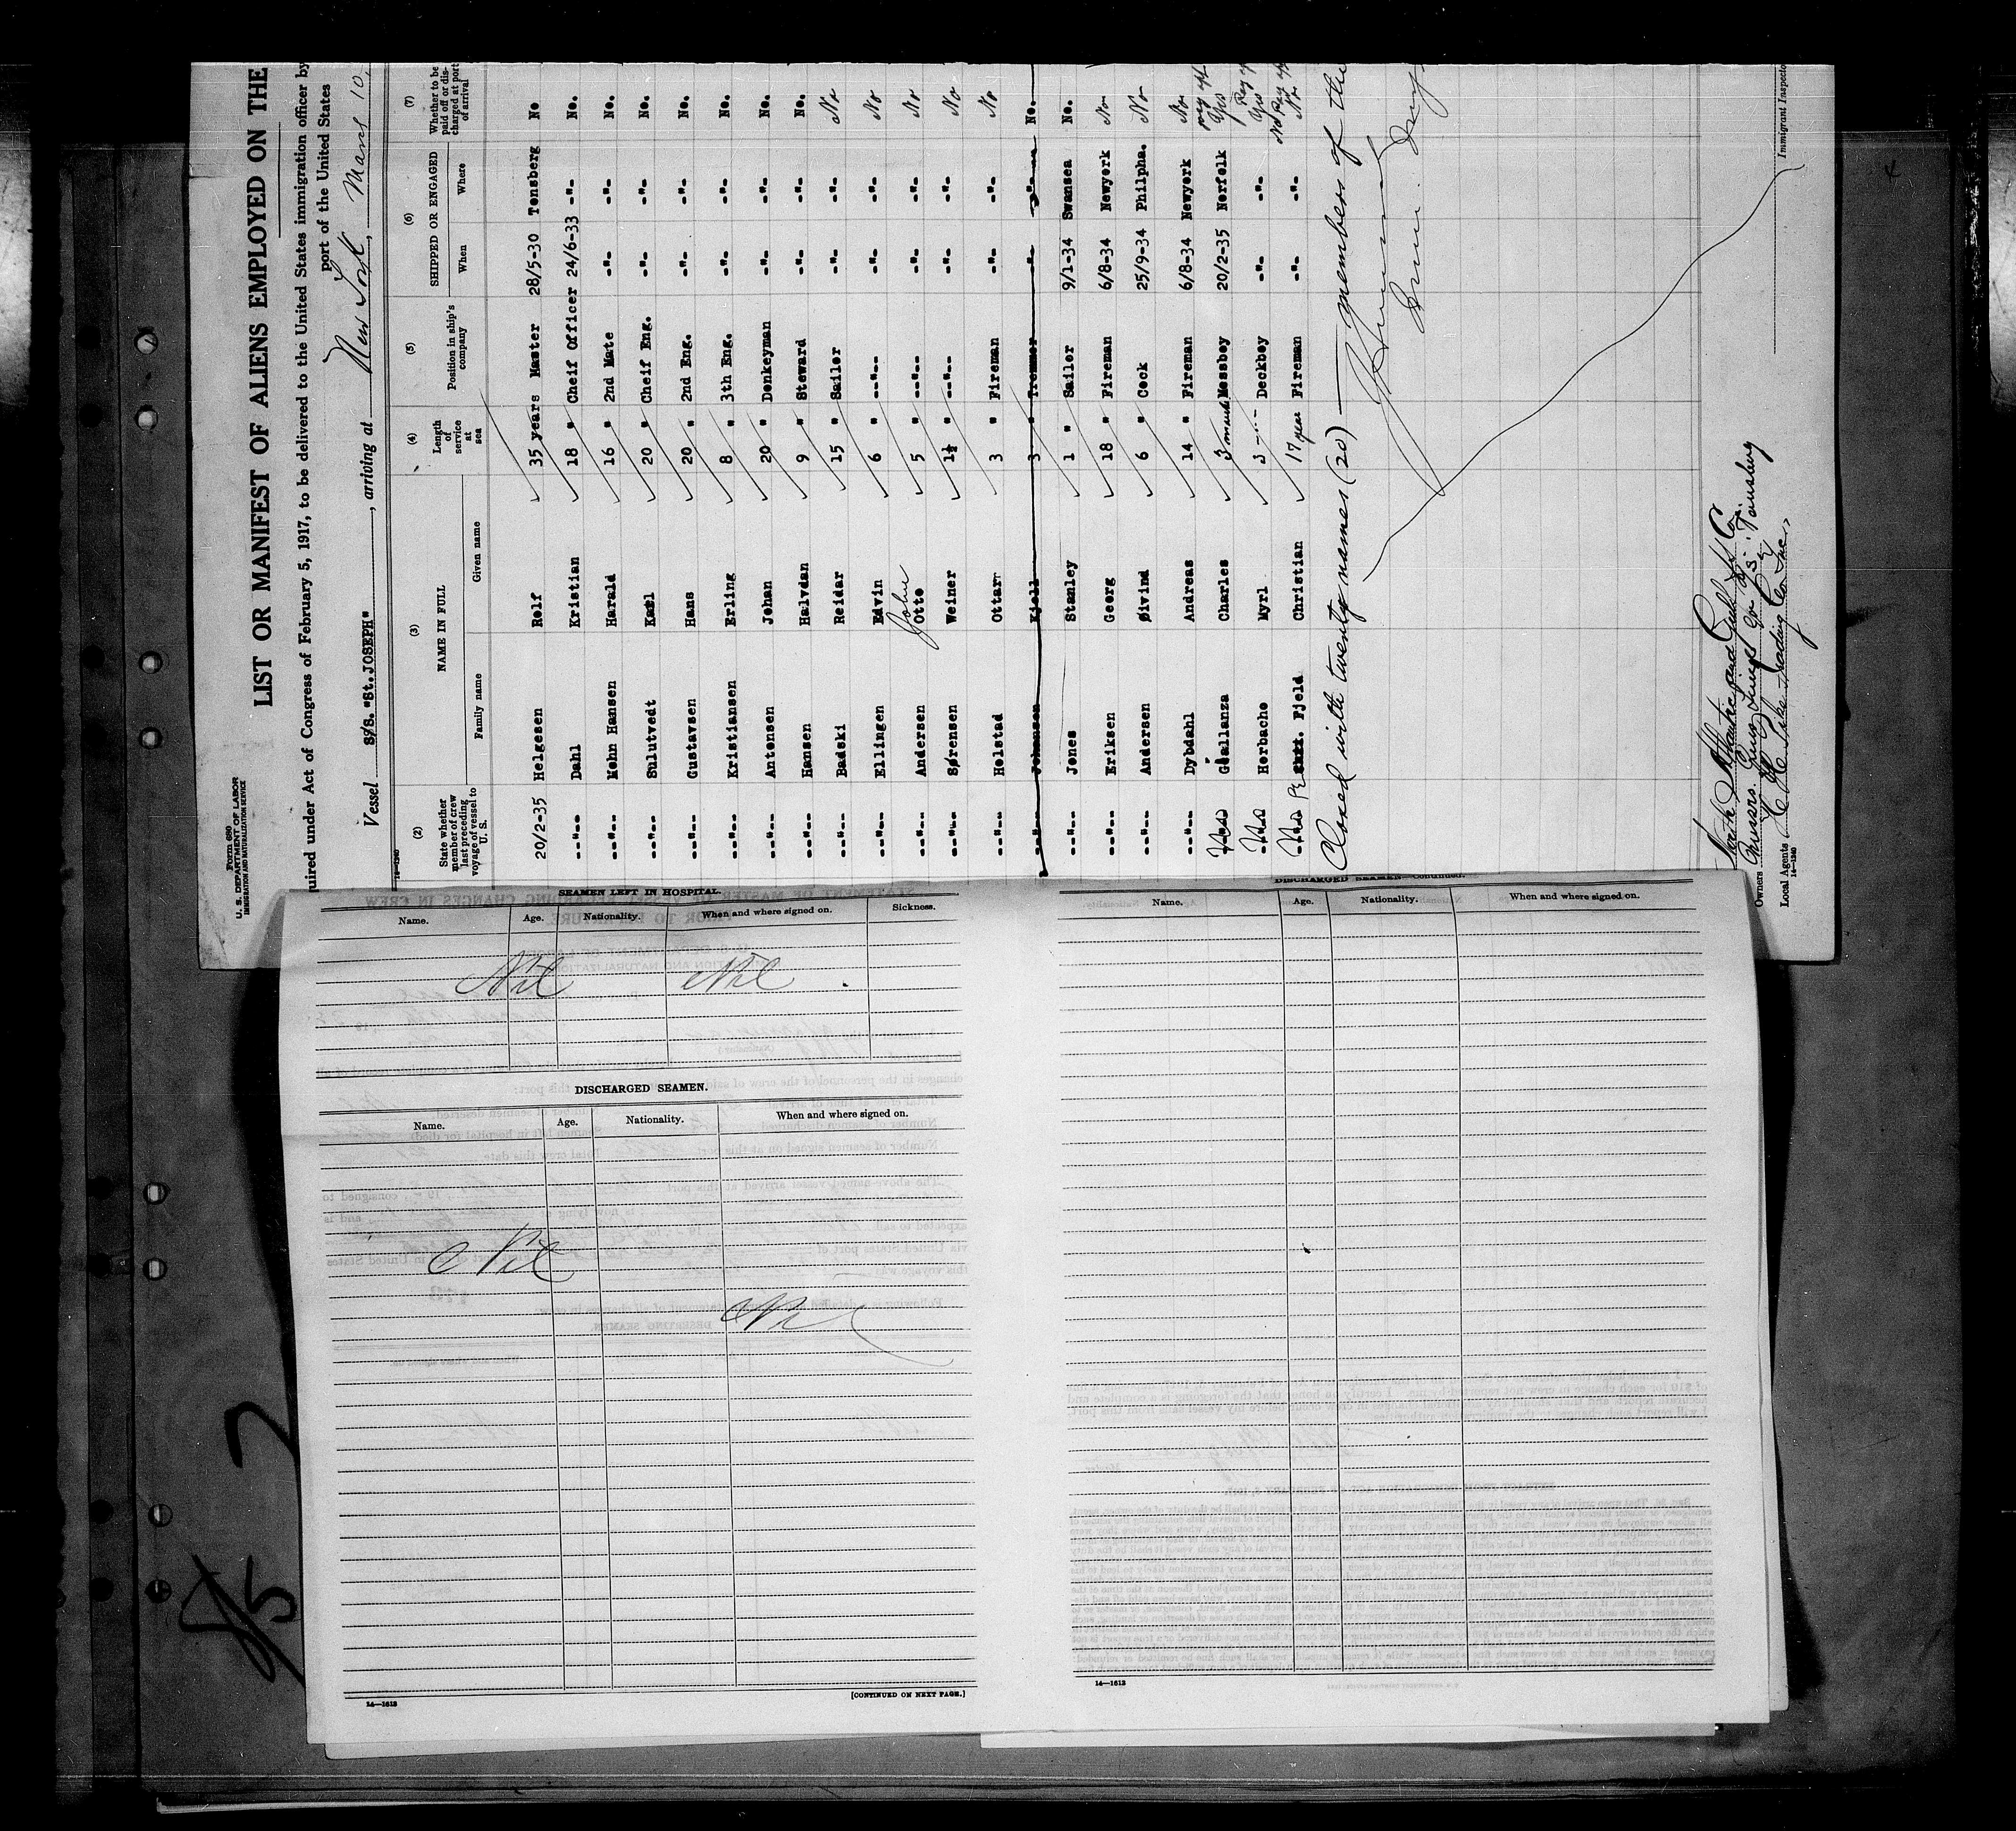 Form 680
U. S. DEPARTMENT OF LABOR
IMMIGRATION AND NATURALIZATION SERVICE
LIST OR MANIFEST OF ALIENS EMPLOYED ON THE
quired under Act of Congress of February 5, 1917, to be delivered to the United States immigration officer by
port of the United States
Vessel S/S. "St.JOSEPH", arriving at New York, Mars 10,
14—1240
(2) (3) (4) (5) (6) (7)
State whether member of crew last preceding voyage of vessel to U. S. NAME IN FULL Length of service at sea Position in ship's company SHIPPED OR ENGAGED Whether to be paid off or discharged at port of arrival
Family name Given name When Where
20/2-35 Helgesen Rolf 35 years Master 28/5-30 Tønsberg No
--"-- Dahl Kristian 18 " Cheif Officer 24/6-33 -"- No.
--"-- Mohn Hansen Harald 16 " 2nd Mate -"- -"- No.
--"-- Sulutvedt Karl 20 " Cheif Eng. -"- -"- No.
--"-- Gustavsen Hans 20 " 2nd Eng. -"- -"- No.
--"-- Kristiansen Erling 8 " 3th Eng. -"- -"- No.
--"-- Antonsen Johan 20 " Donkeyman -"- -"- No.
--"-- Hansen Halvdan 9 " Steward -"- -"- No.
--"-- Badski Reidar 15 " Sailor -"- -"- No
--"-- Ellingen Edvin 6 " --"-- -"- -"- No
--"-- Andersen John Otto 5 " --"-- -"- -"- No
--"-- Sørensen Weiner 1½ " --"-- -"- -"- No
--"-- Holstad Ottar 3 " Fireman -"- -"- No
--"-- Johansen Kjell 3 " Tremmer -"- -"- No.
--"-- Jones Stanley 1 " Sailor 9/1-34 Swansea No.
--"-- Eriksen Georg 18 " Fireman 6/8-34 Newyork No
--"-- Andersen Øivind 6 " Cock 25/9-34 Philpha. No
--"-- Dybdahl Andreas 14 " Fireman 6/8-34 Newyork No
Gallanza Charles 3 Messboy 20/2-35 Norfolk Yes
Horbache Myrl Deckboy -"- -"- Yes
Fjeld Christian 17 year Fireman -"- -"- No
Closed with twenty names (20) — members of the
North Atlantic and Gulf SS Co.
Owners
Local Agents
14—1240
Immigrant Inspector
SEAMEN LEFT IN HOSPITAL.
Name. Age. Nationality. When and where signed on. Sickness.
Nil Nil
DISCHARGED SEAMEN.
Name. Age. Nationality. When and where signed on.
Nil
Nil
14—1613
[CONTINUED ON NEXT PAGE.]
DISCHARGED SEAMEN—Continued.
Name. Age. Nationality. When and where signed on.
14—1613